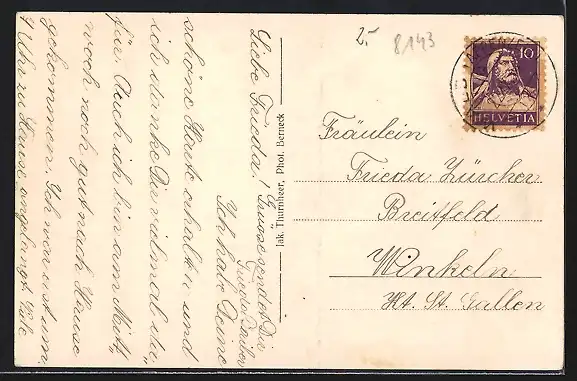 2.-
8143
10
HELVETIA
Fräulein
Frieda Zürcher
Breitfeld
Winkeln
Kt. St. Gallen
Jak. Thurnheer, Phot. Berneck
Liebe Frieda!
Ich habe Deine
schöne Karte erhalten und
ich danke Dir vielmal da-
für. Auch ich bin am Mont,
noch noch gut nach Hause
gekommen. Ich war ist um
7 Uhr zu Hause angelangt. Viele
Grüsse sendet Dir
Frieda